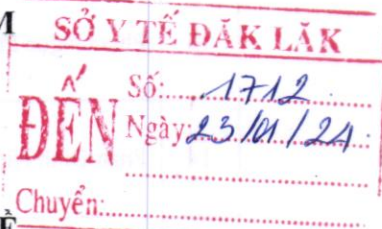 SỞ Y TẾ ĐĂK LĂK
ĐẾN
Số: 1712
Ngày: 23/01/24
Chuyển: